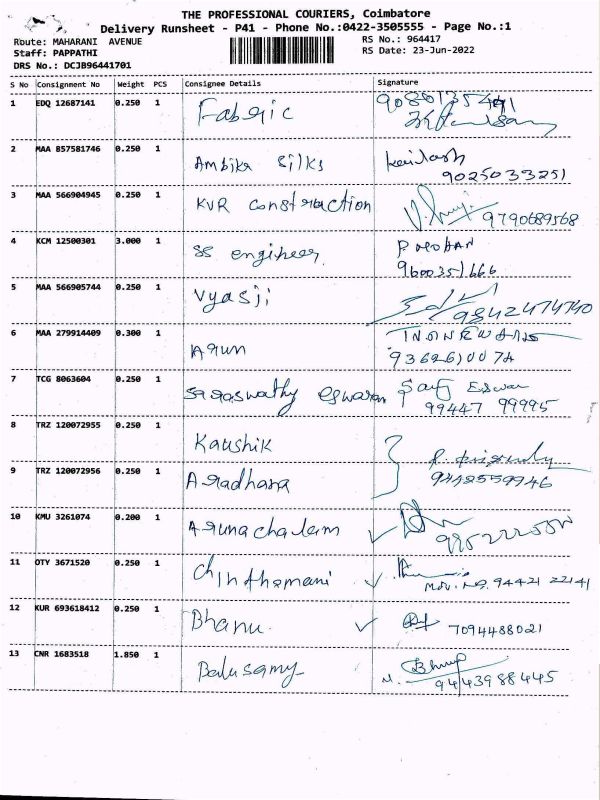 THE PROFESSIONAL COURIERS, Coimbatore
Delivery Runsheet - P41 - Phone No.:0422-3505555 - Page No.:1
Route: MAHARANI AVENUE RS No.: 964417
Staff: PAPPATHI RS Date: 23-Jun-2022
DRS No.: DCJB96441701
S No Consignment No Weight PCS Consignee Details Signature
1 EDQ 12687141 0.250 1 Fabric
2 MAA 857581746 0.250 1 Ambika Silks Kailash
9025033251
3 MAA 566904945 0.250 1 KVR Construction 9790689568
4 KCM 12500301 3.000 1 SS engineer. P MOHAN
9600351666
5 MAA 566905744 0.250 1 Vyasji 9842474740
6 MAA 279914409 0.300 1 Arun
7 TCG 8063604 0.250 1 Saraswathy Eswaran Eswar
99447 99995
8 TRZ 120072955 0.250 1 Kaushik
9 TRZ 120072956 0.250 1 Aradhana
10 KMU 3261074 0.200 1 Arunachalam
11 OTY 3671520 0.250 1 Chinthamani
MOV. NO. 94421 22141
12 KUR 693618412 0.250 1 Bhanu. 7094488021
13 CNR 1683518 1.850 1 Balusamy
9443988445